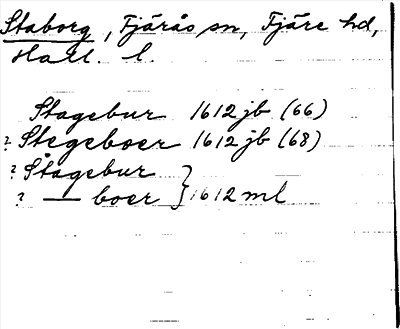 Staborg, Fjärås sn, Fjäre hd,
Hall. l.
Stagebur 1612 jb (66)
? Stegeboer 1612 jb (68)
? Stagebur } 1612 ml
? — boer